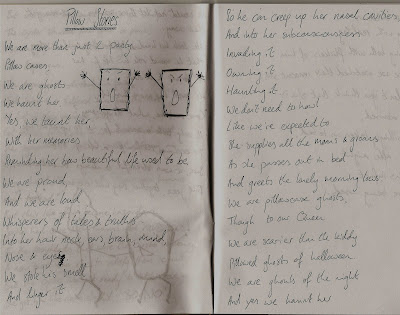 Pillow Stories
We are more than just a pretty
Pillow cases
We are ghosts
We haunt her,
Yes we taunt her,
With her memories
Reminding her how beautiful life used to be
We are proud,
And we are loud
Whisperers of tales & truths
Into her hair neck ears, brain, mind,
Nose & eyes
We stole his smell
And linger it
So he can creep up her nasal cavities,
And into her subconsciousness
Invading it
Owning it
Haunting it
We don't need to howl
Like we're expected to
She supplies all the moans & groans
As she passes out in bed
And greets the lonely morning
We are pillowcase ghosts,
Though to our Queen
We are scarier than the
Pillowed ghosts of halloween
We are ghouls of the night
And yes we haunt her